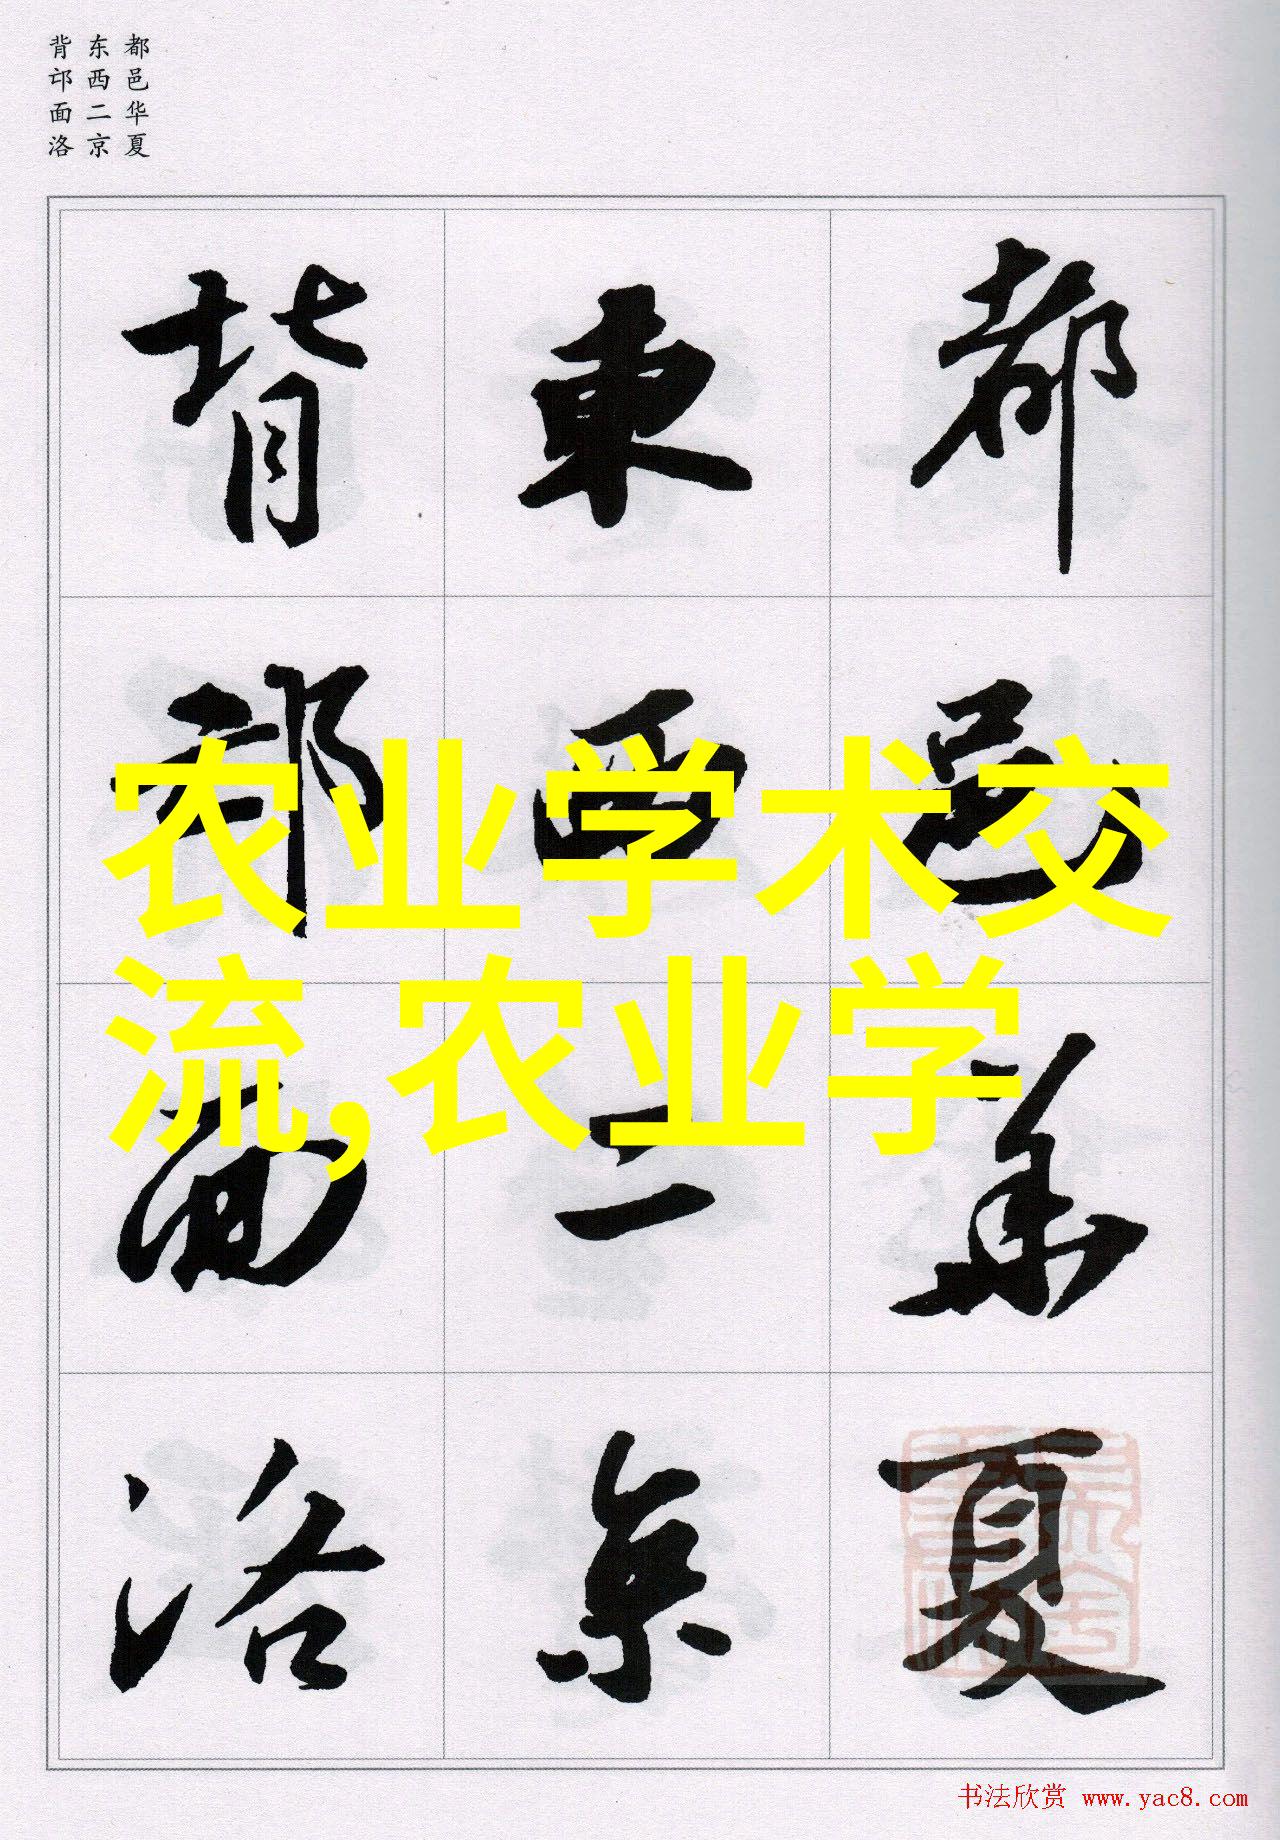 都邑华夏
东西二京
背邙面洛
都邑華夏
東西二京
背邙面洛
农业学术交
流,农业学
书法欣赏 www.yac8.com